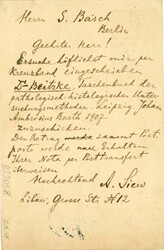 Herrn S. Basch
Berlin
Geehrter Herr!
Ersuche höflichst mir per
Kreuzband eingeschrieben
Dr Beitzke, Taschenbuch der
pathologisch histologischen Unter
suchungsmethoden Leipzig Johan
Ambrosius Barth 1907.
zuzuschicken.
Den Betrag werde samt
porto nach Erhalten
Ihrer Nota per Posttransfert
überweisen
Hochachtend
A. Siew
Libau, Grosse Str. N12